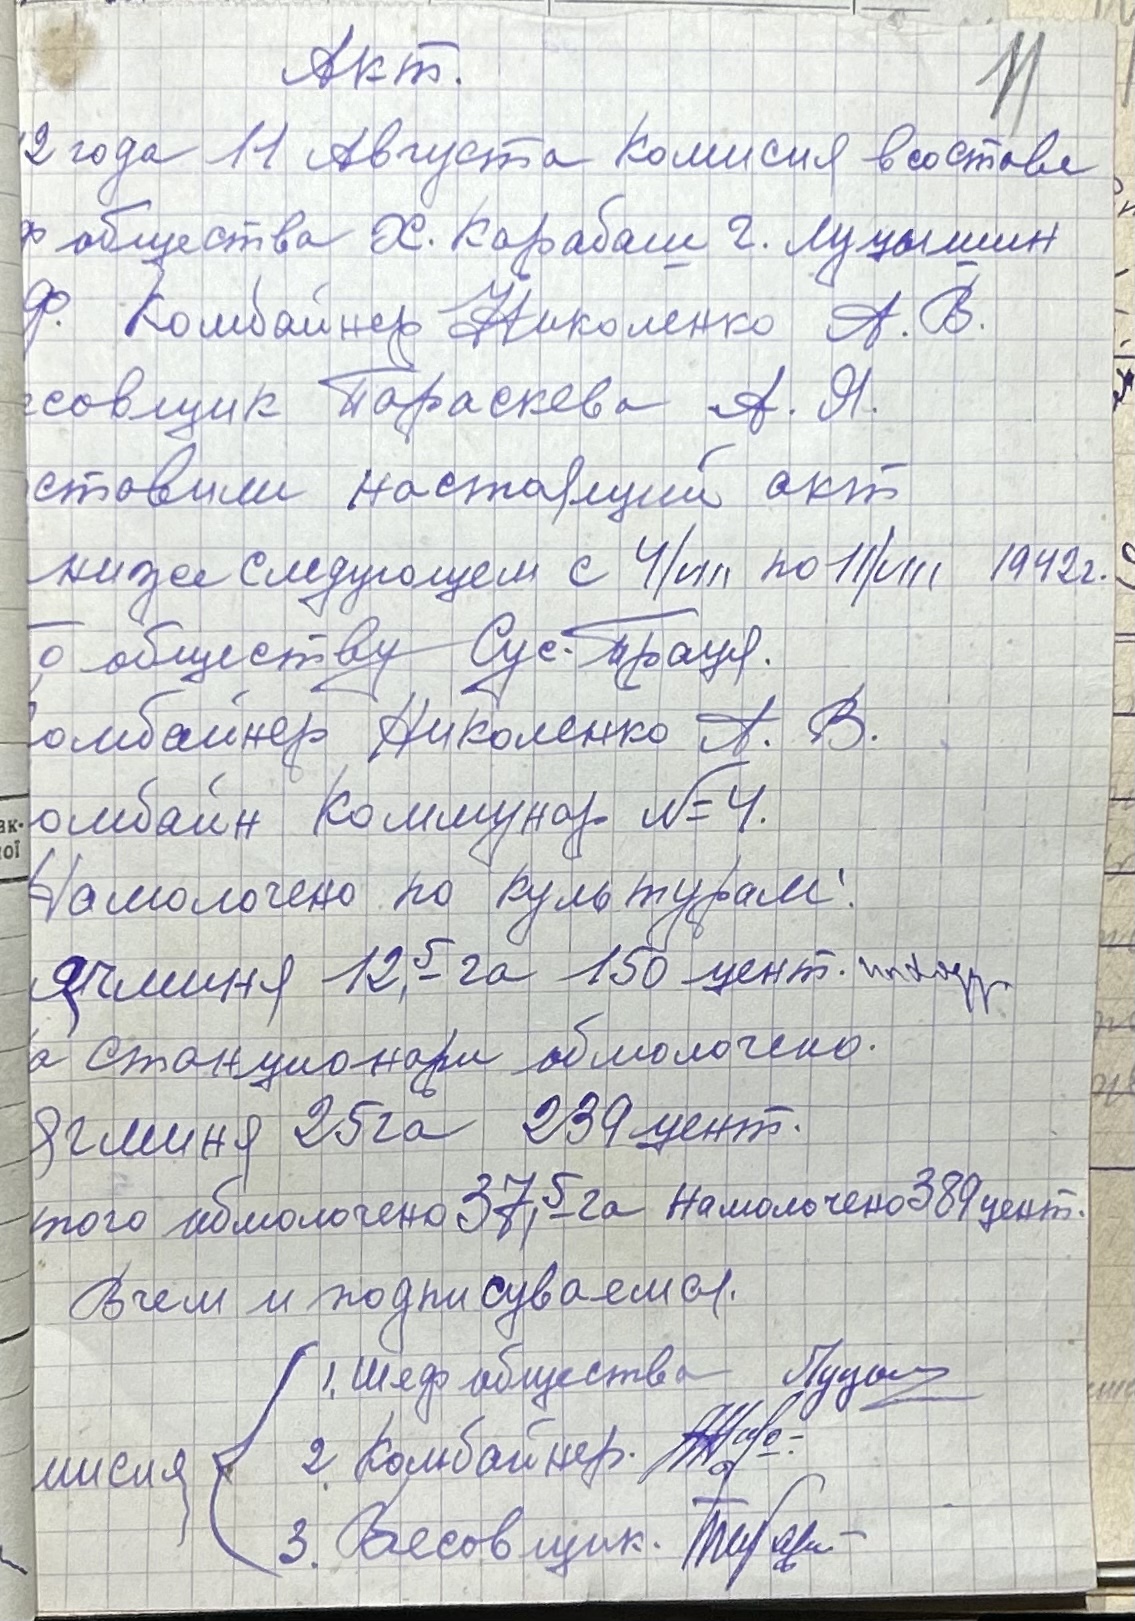 Акт.
11
2 года 11 Августа Комисия в составе
ф общества Х. Карабаш г. Луцышин
Ф. Комбайнер Николенко А. В.
совщик Тараскева А. Я.
ставили настаящий акт
ниже следующем с 4/VIII по 11/VIII 1942 г.
о обществу Сус. Траця.
омбайнер Николенко А. В.
омбайн Коммунар №=4.
Намолочено по культурам:
ячминя 12,5 га 150 цент.
а станционари обмолочено.
Ячминя 25 га 239 цент.
того обмолочено 37,5 га Намолочено 389 цент.
Вчем и подписуваемся.
1. Шеф общества Луцы
мисия 2. Комбайнер.
3. Весовщик.
ак-
ної